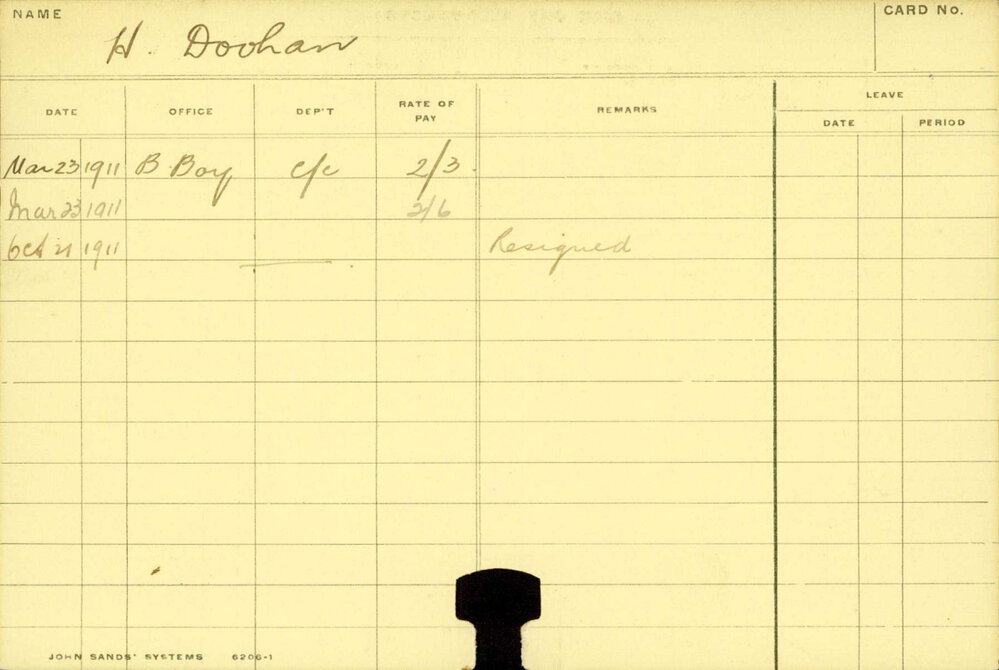 NAME
H. Doohan
CARD No.
DATE OFFICE DEP'T RATE OF PAY REMARKS LEAVE
DATE PERIOD
Mar 23 1911 B Boy c/c 2/3
Mar 23 1911 2/6
Oct 21 1911 Resigned
JOHN SANDS' SYSTEMS 6206-1